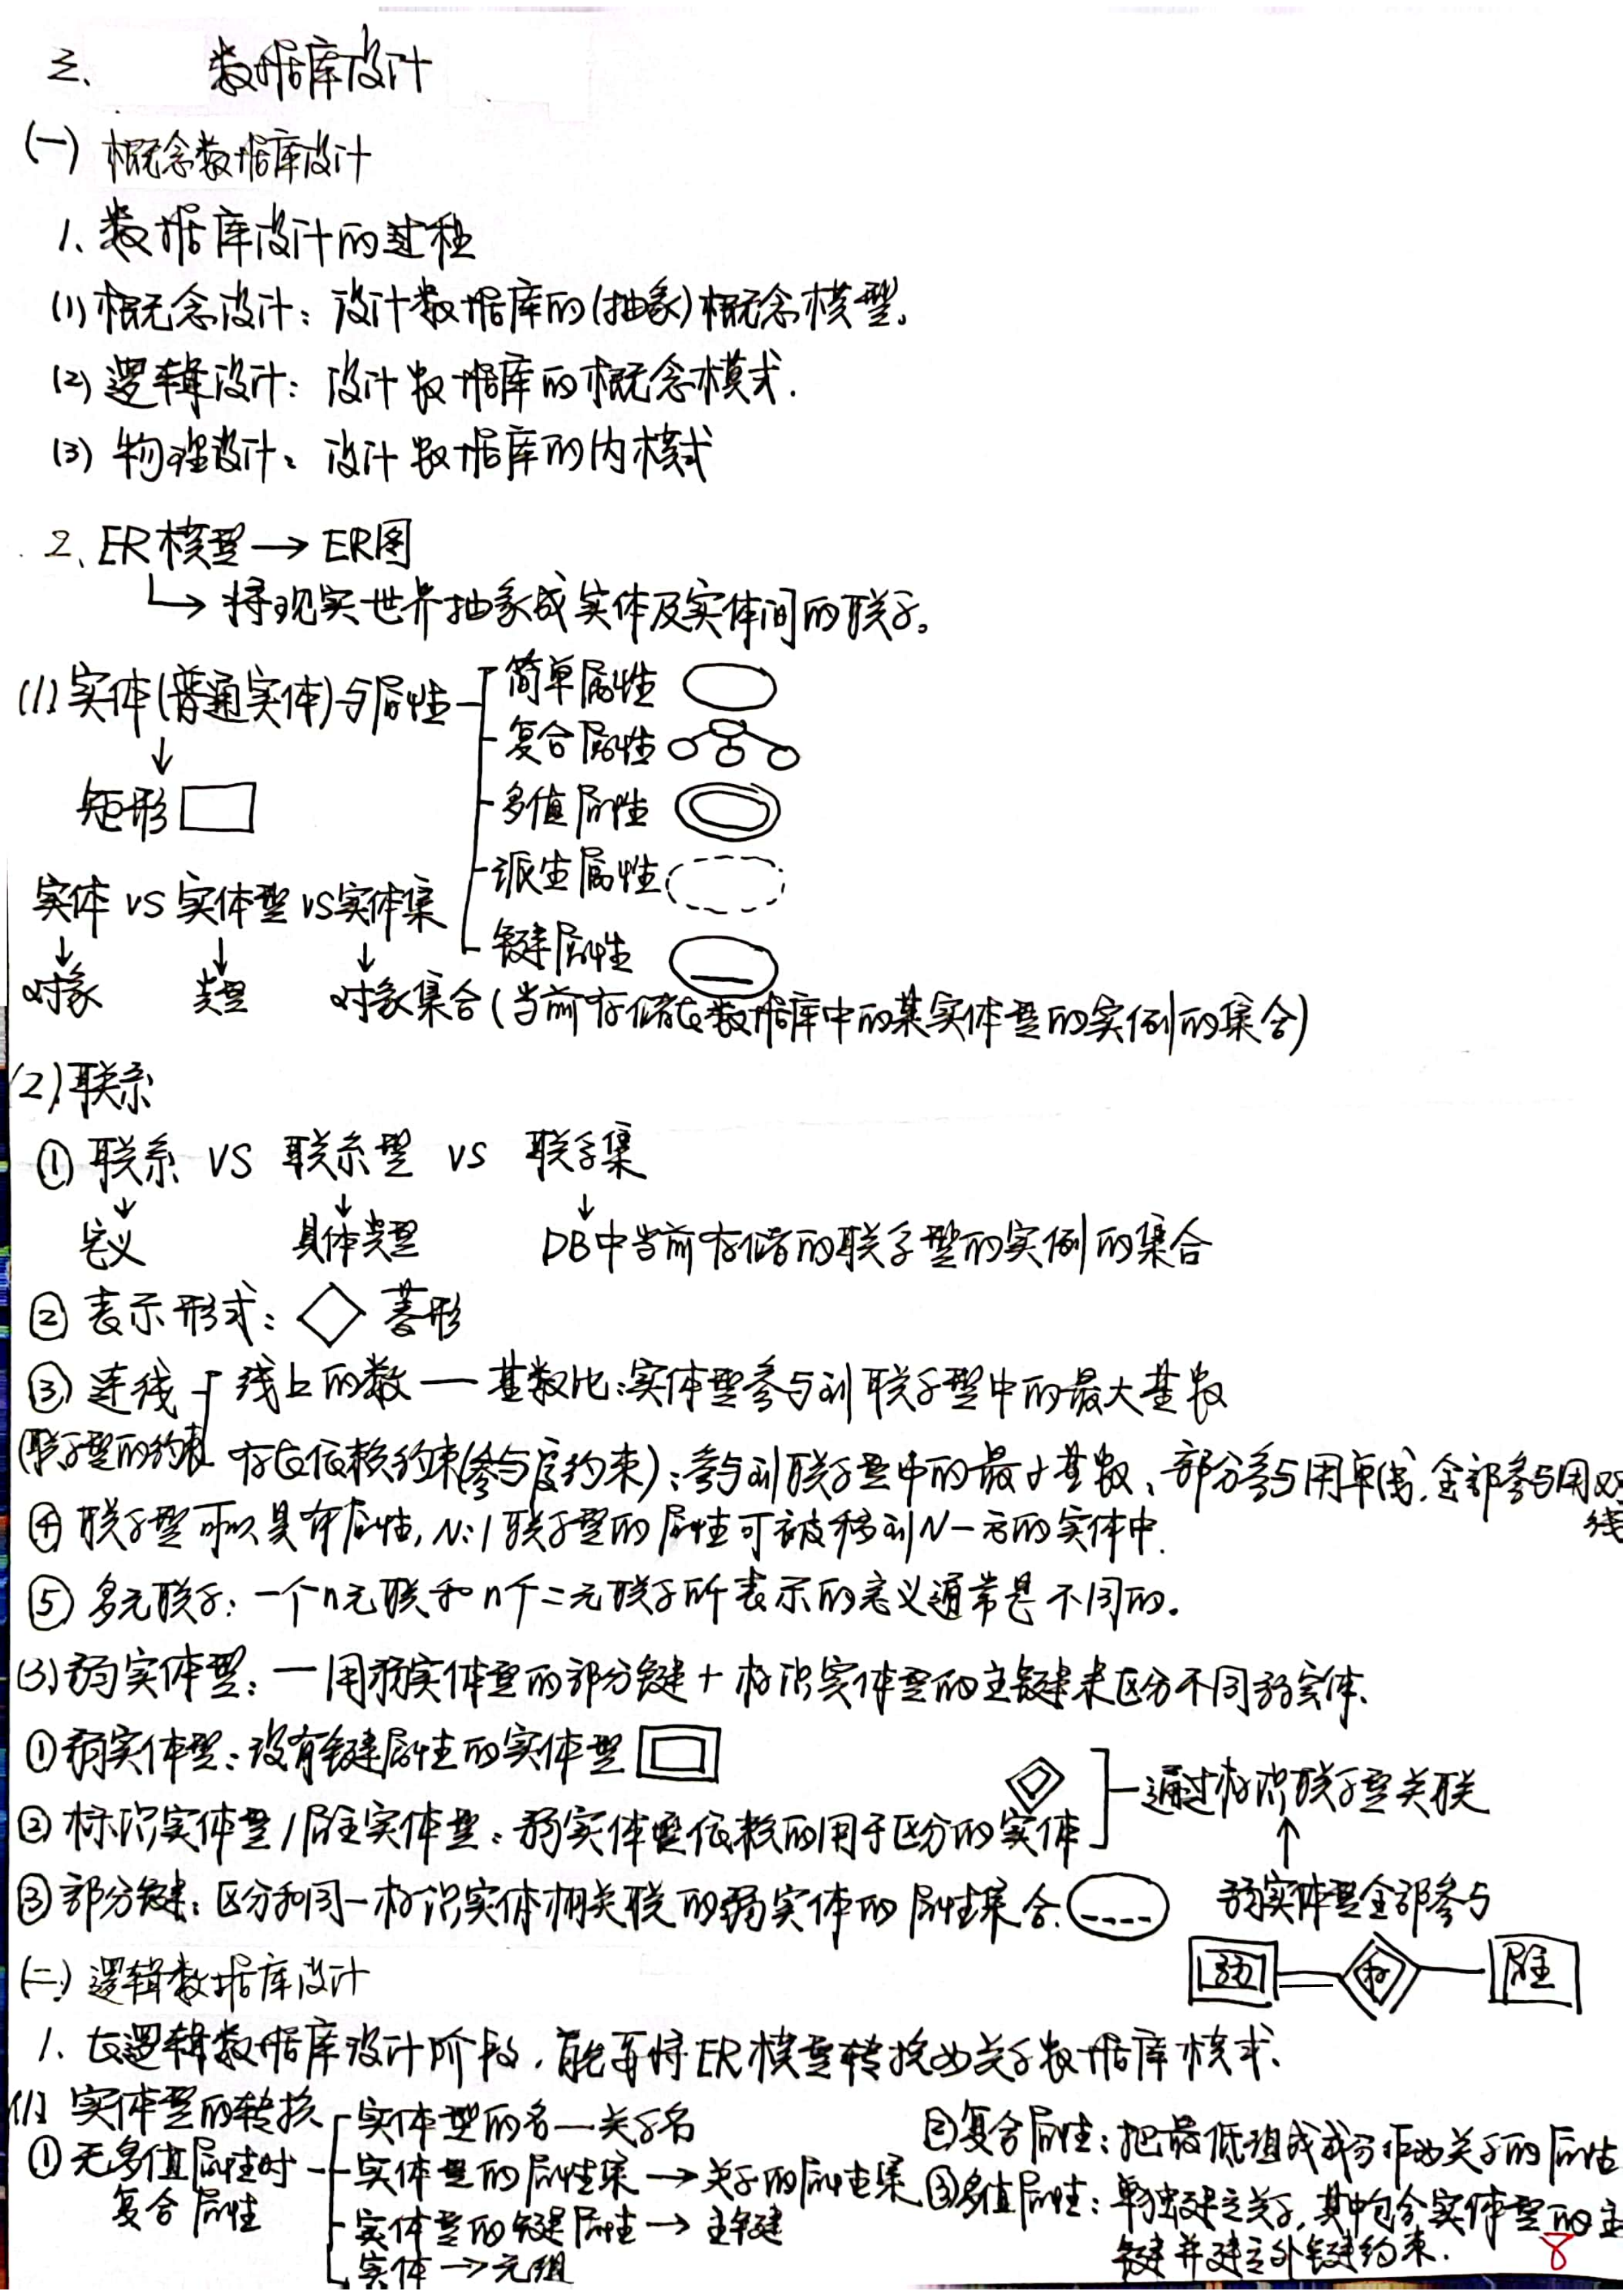 三、 数据库设计
(一) 概念数据库设计
1、数据库设计的过程
(1) 概念设计：设计数据库的(抽象)概念模型。
(2) 逻辑设计：设计数据库的概念模式.
(3) 物理设计：设计数据库的内模式
2、ER模型→ER图
↳将现实世界抽象成实体及实体间的联系。
(1) 实体(普通实体)与属性
简单属性
复合属性
多值属性
派生属性
键属性
↓
矩形
实体 VS 实体型 VS 实体集
↓ ↓ ↓
对象 类型 对象集合(当前存储在数据库中的某实体型的实例的集合)
(2) 联系
① 联系 VS 联系型 VS 联系集
↓ ↓ ↓
定义 具体类型 DB中当前存储的联系型的实例的集合
② 表示形式：◇ 菱形
③ 连线 线上的数—基数比：实体型参与到联系型中的最大基数
(联系型的约束 存在依赖约束(参与度约束)：参与到联系型中的最小基数、部分参与用单线,全部参与用双线
④ 联系型可以具有属性, N:1联系型的属性可被移到N一方的实体中.
⑤ 多元联系：一个n元联系和n个二元联系所表示的意义通常是不同的。
(3) 弱实体型：一用弱实体型的部分键+标识实体型的主键来区分不同弱实体.
① 弱实体型：没有键属性的实体型
② 标识实体型/属主实体型：弱实体型依赖的用于区分的实体
通过标识联系型关联
↑
弱实体型全部参与
③ 部分键：区分和同一标识实体相关联的弱实体的属性集合.
弱 标 属主
(二) 逻辑数据库设计
1. 在逻辑数据库设计阶段,首先要将ER模型转换为关系数据库模式.
(1) 实体型的转换
① 无多值属性时
复合属性
实体型的名—关系名
实体型的属性集→关系的属性集
实体型的键属性→主键
实体→元组
② 复合属性：把最低组成成分作为关系的属性
③ 多值属性：单独建立关系,其中包含实体型的主
键并建立外键约束.
8